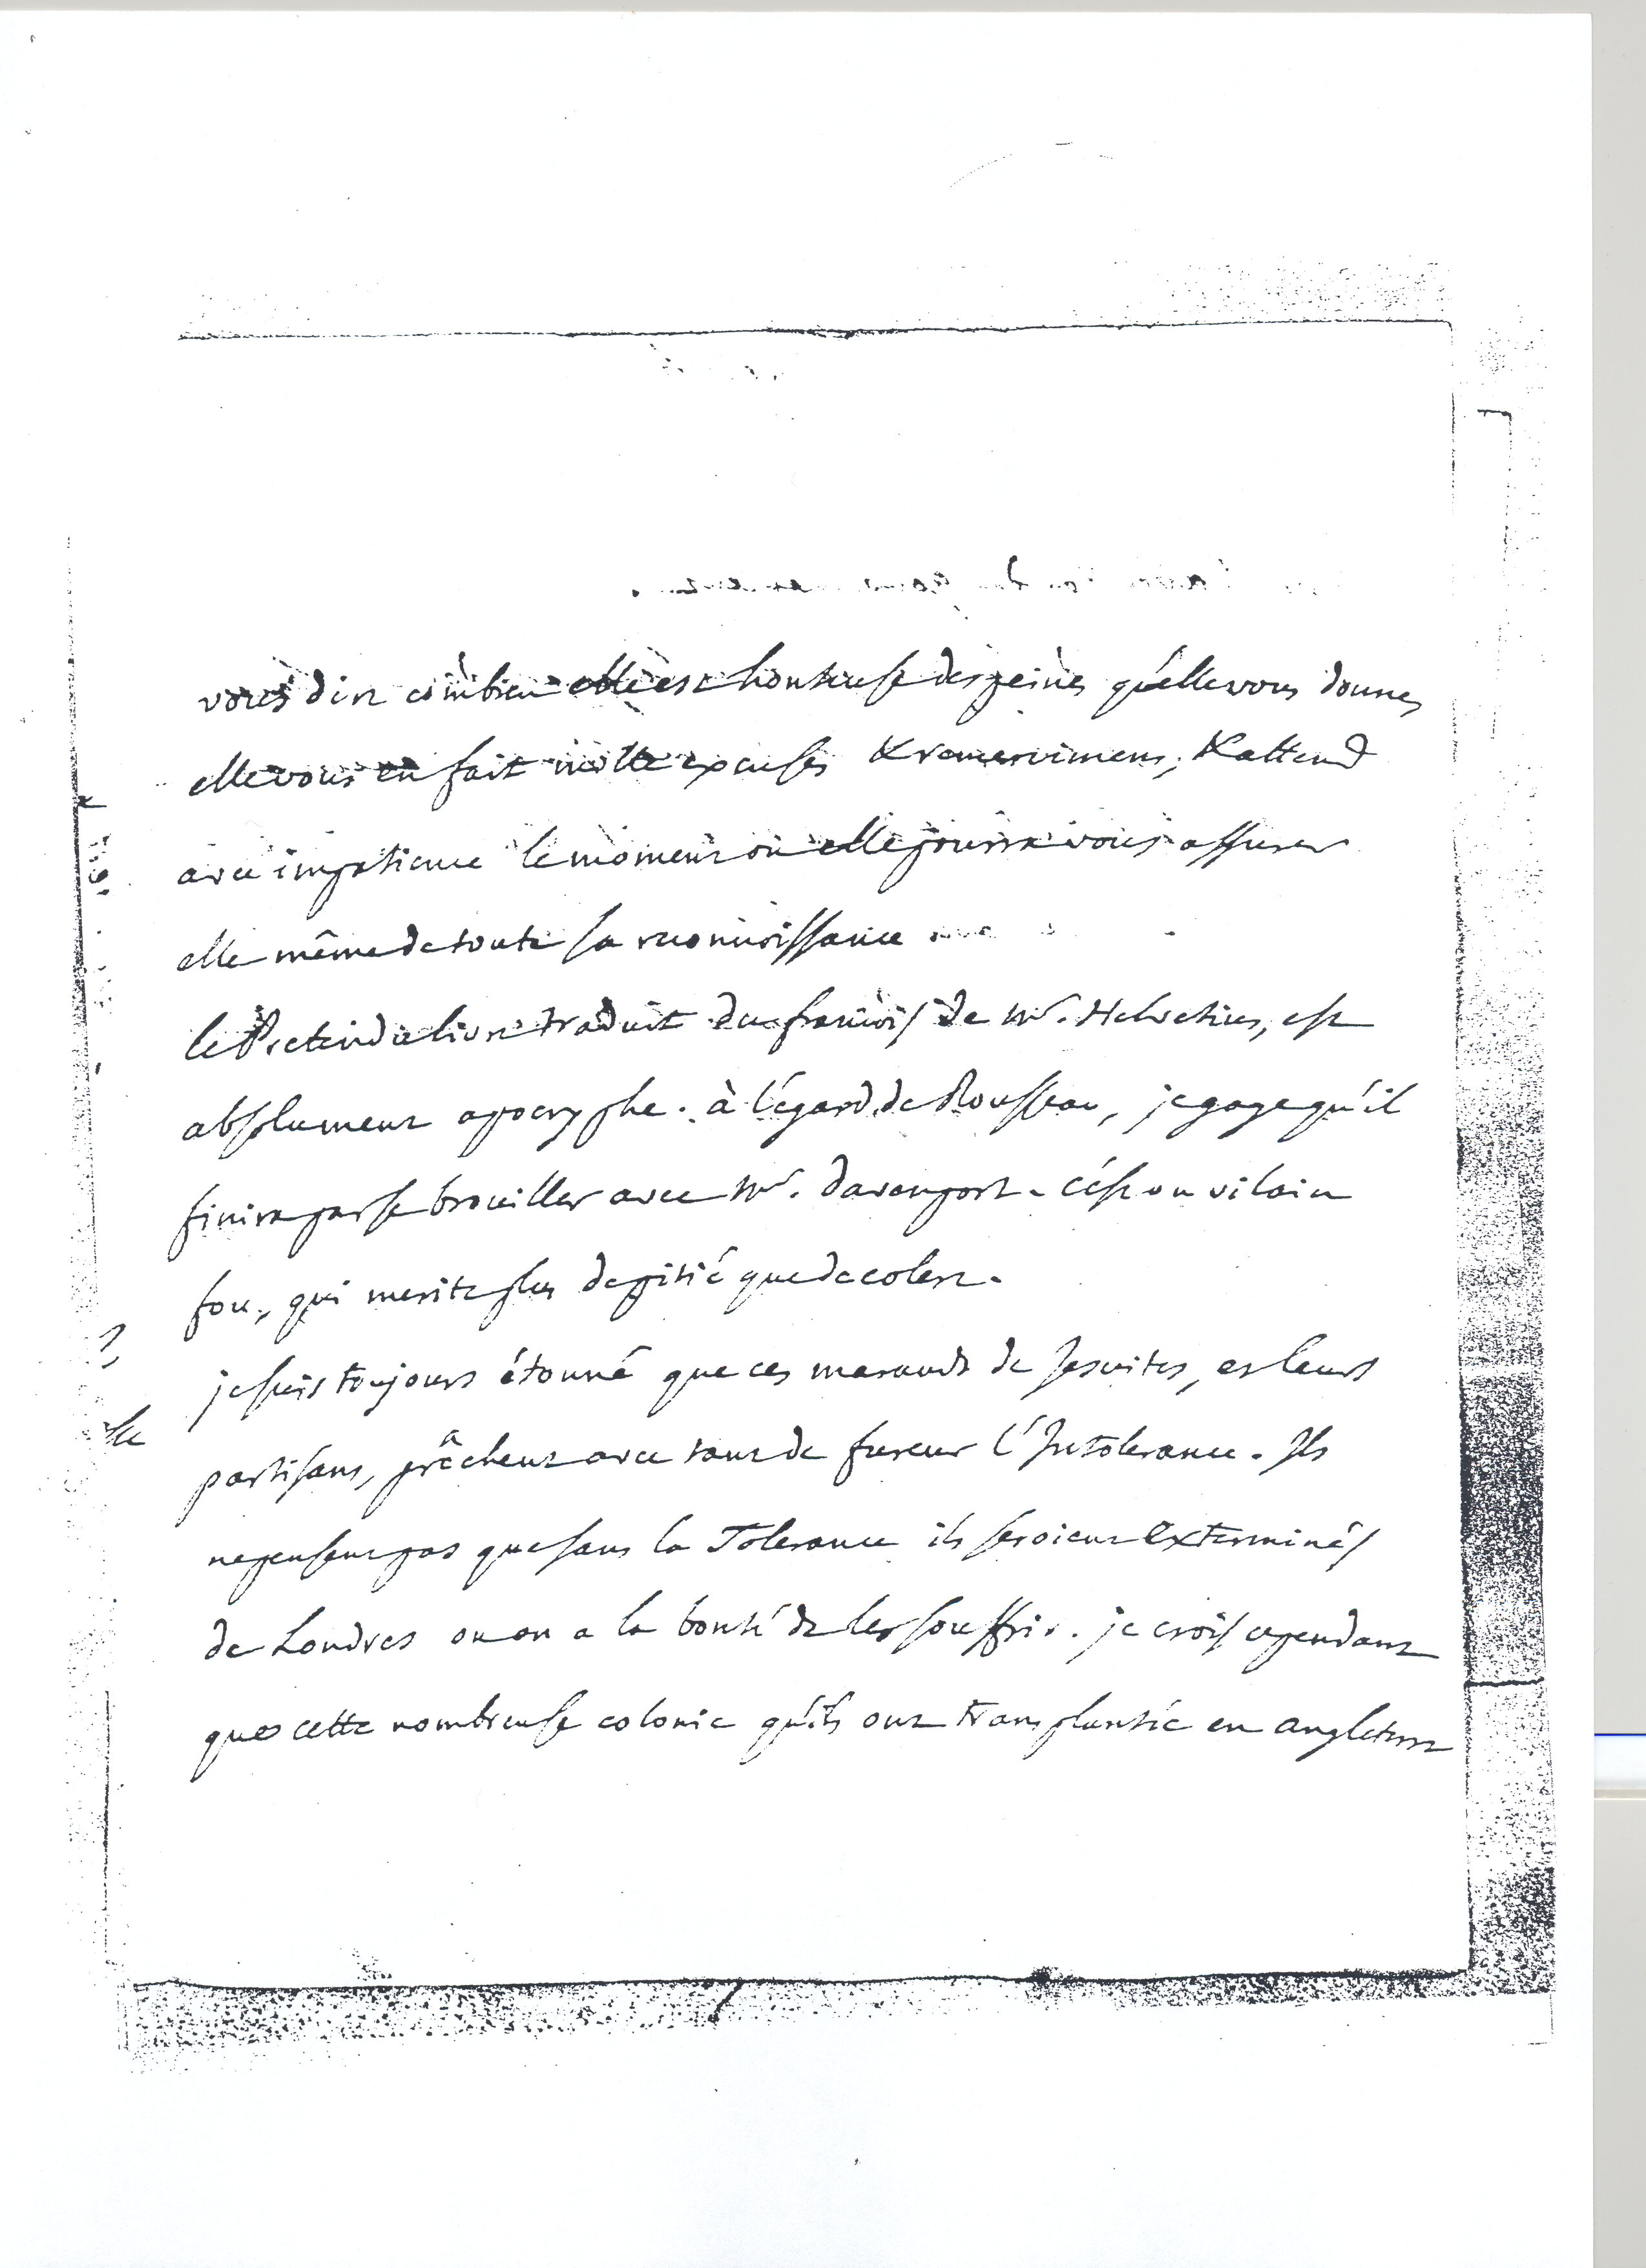 vous dire combien elle est honteuse des peines qu'elle vous donne,
elle vous en fait mille excuses & remercimens, & attend
avec impatience le moment où elle pourra vous assurer
elle même de toute sa reconnoissance
le Pretendu livre traduit du françois de Mr. Helvetius, est
absolument apocryphe. à l'égard de Rousseau, je gage qu'il
finira par se brouiller avec Mr. davenport. c'est un vilain
fou, qui merite plus de pitié que de colere.
je suis toujours étonné que ces marauds de Jesuites, et leurs
partisans, prêchent avec tant de fureur l'Intolerance. Ils
ne pensent pas que sans la Tolerance ils seroient exterminés
de Londres ou on a la bonté de les souffrir. je crois cependant
que cette nombreuse colonie qu'ils ont transplantée en angleterre